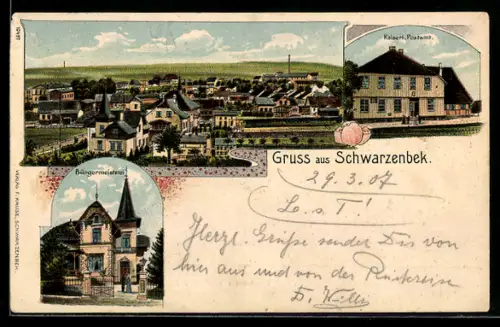 Kaiserl. Postamt.
Gruss aus Schwarzenbek.
Bürgermeisterei
29.3.07
L. s. T!
Herzl. Grüße sendet Dir von
hier aus und von der Rückreise
VERLAG F. KRUSE, SCHWARZENBEK.